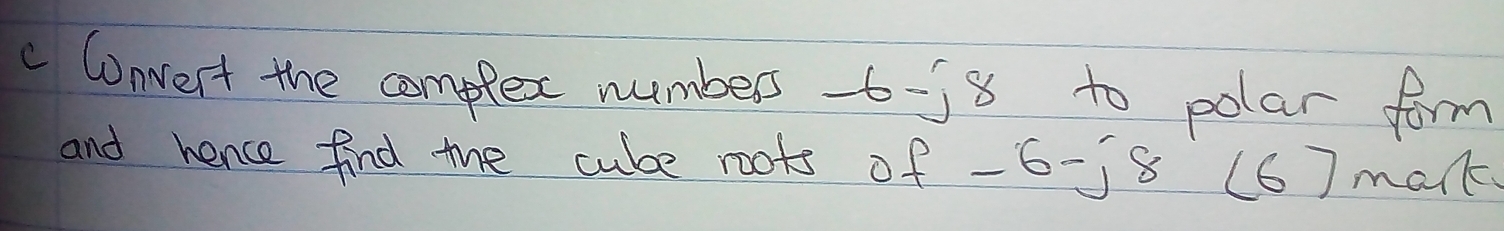 c Convert the complex numbers -6-j8 to polar form
and hence find the cube roots of -6-j8 (6] mark